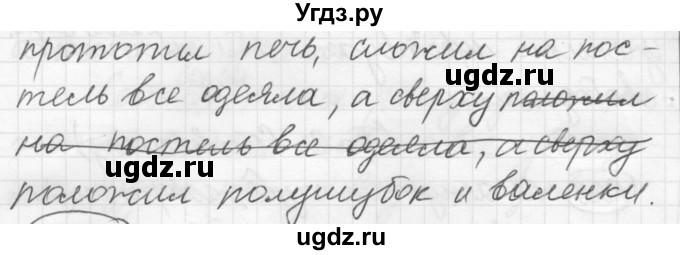 Угдз.ру
протопил печь, сложил на пос-
тель все одеяла, а сверху положил
на постель все одеяла, а сверху
положил полушубок и валенки.
ugdz.ru ugdz.ru ugdz.ru
ugdz.ru ugdz.ru
ugdz.ru